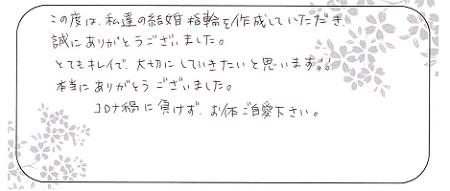 この度は、私達の結婚指輪を作成していただき
誠にありがとうございました。
とてもキレイで、大切にしていきたいと思います!!
本当にありがとうございました。
コロナ禍に負けず、お体ご自愛下さい。